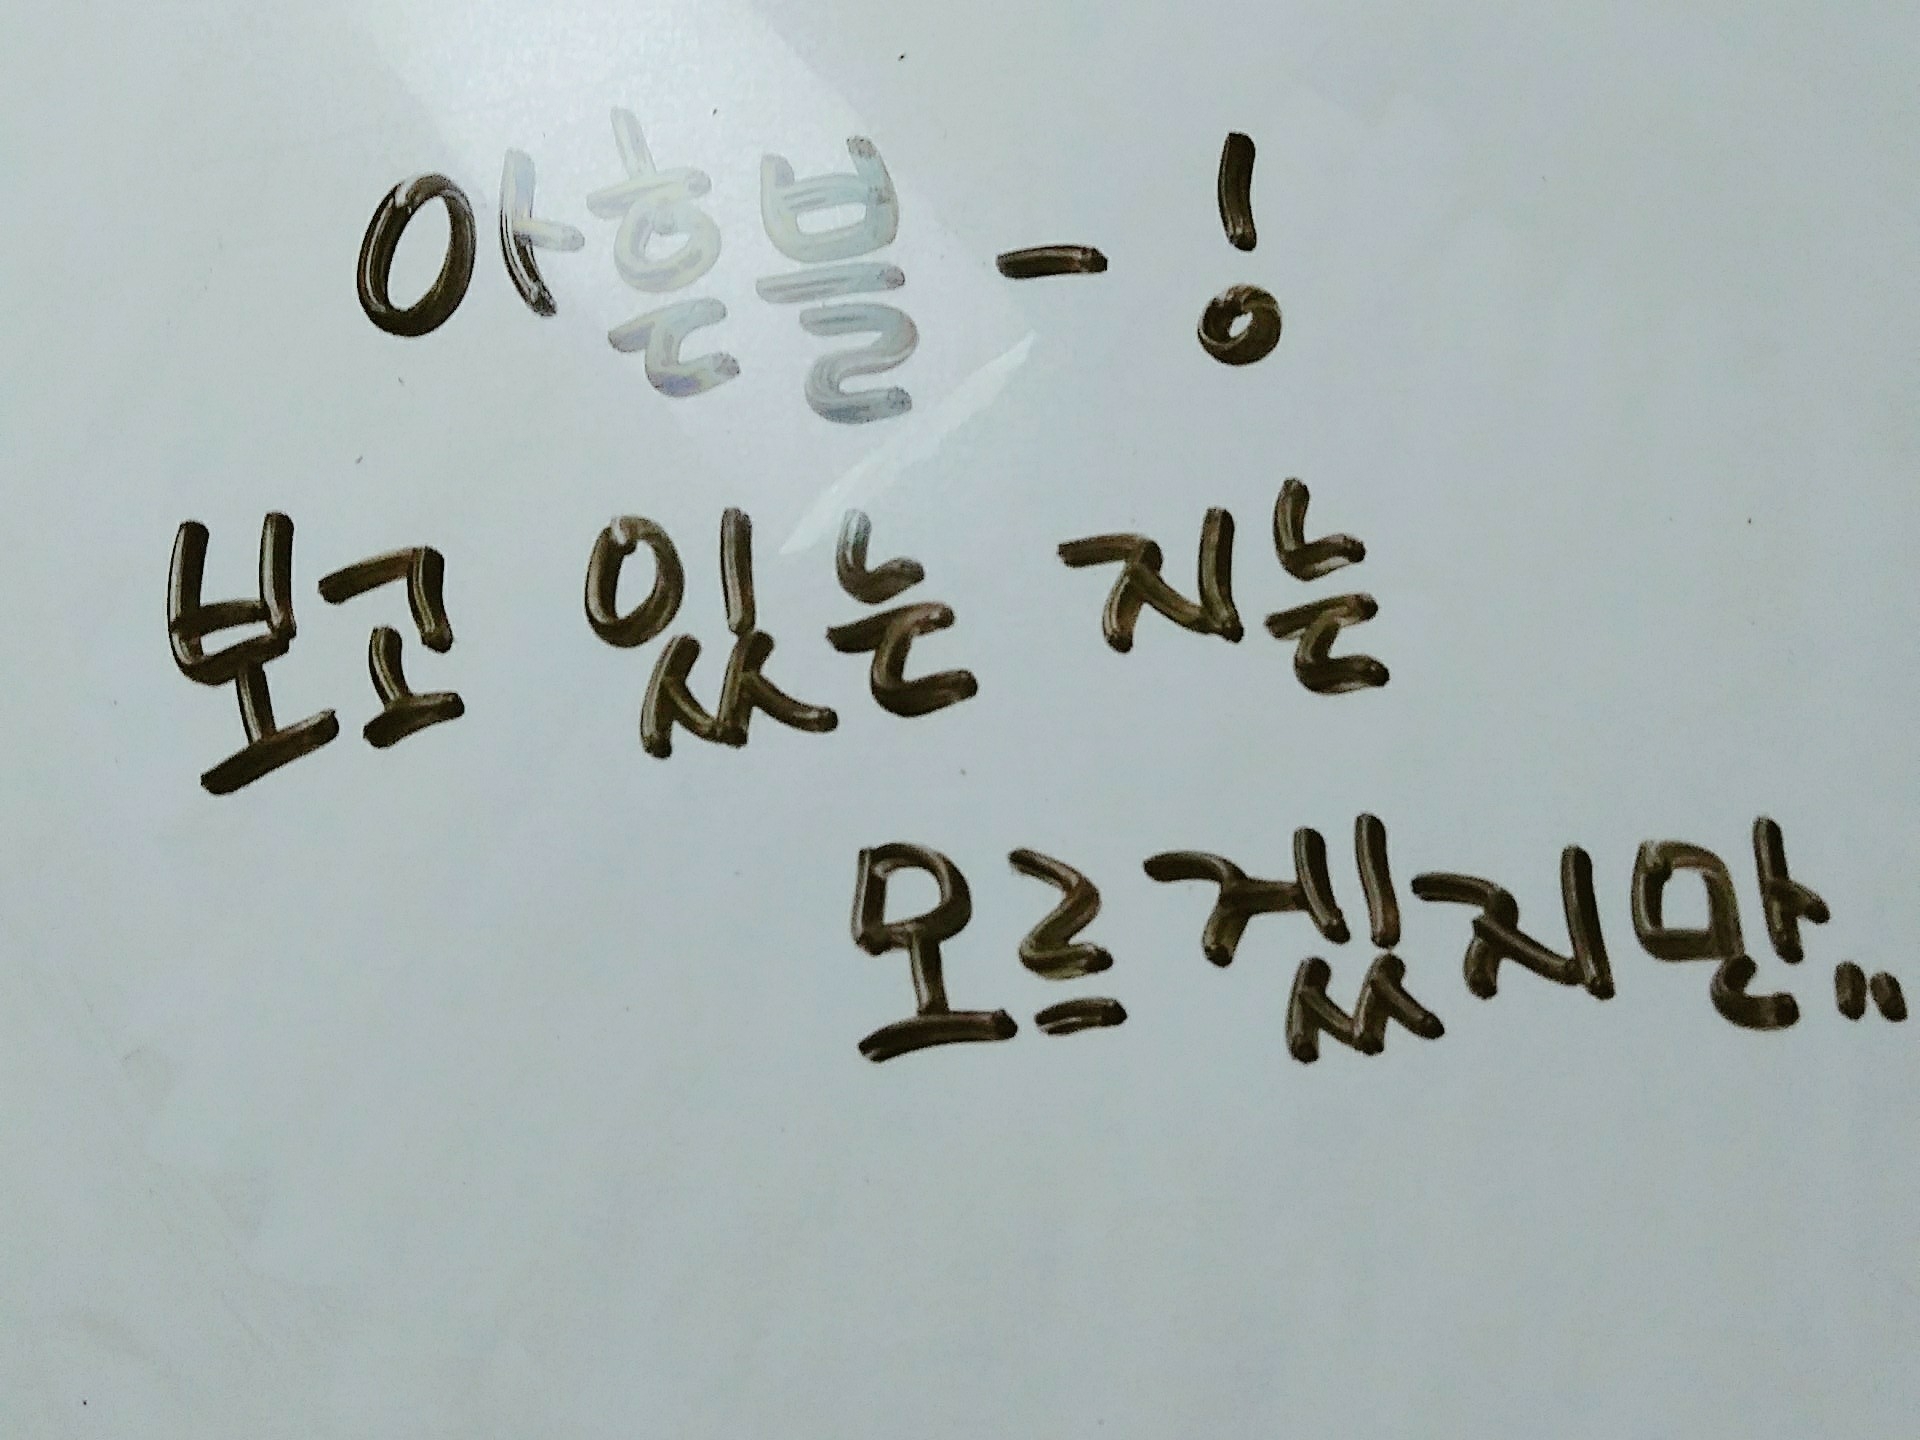 아흔블-!
보고 있는 지는
모르겠지만..